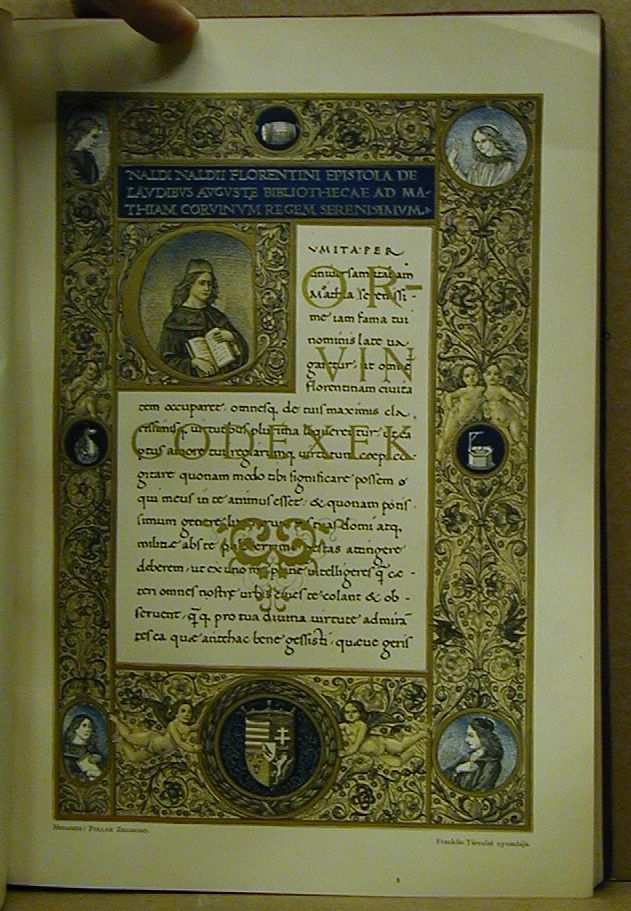 NALDI NALDII FLORENTINI EPISTOLA DE
LAVDIBVS AVGVSTE BIBLIOTHECAE AD MA-
THIAM CORVINVM REGEM SERENISIMVM.
VM ITA PER
universam italiam
Mathia serenissi-
me iam fama tui
nominis late va
garetur, ut omnē
florentinam civita
tem occuparet, omnesq, de tuis maximis cla,
rissimisq, virtutibus plurima loquerētur, ut ca
ptus amore tui
gitare quonam modo tibi significare possem o
qui meus in te animus esset, & quonam potis-
simum genere domi atq,
militiæ abs te attingere
deberem, ut ex uno me intelligeres q̄ cæ-
teri omnes nostræ urbis cives te colant & ob-
servent, q̄q, pro tua divina virtute admirā
tes ea quæ antehac bene gessisti, quæve geris
COR-
VIN
CODEXEK
POLLÁK ZSIGMOND.
Franklin-Társulat nyomdája.